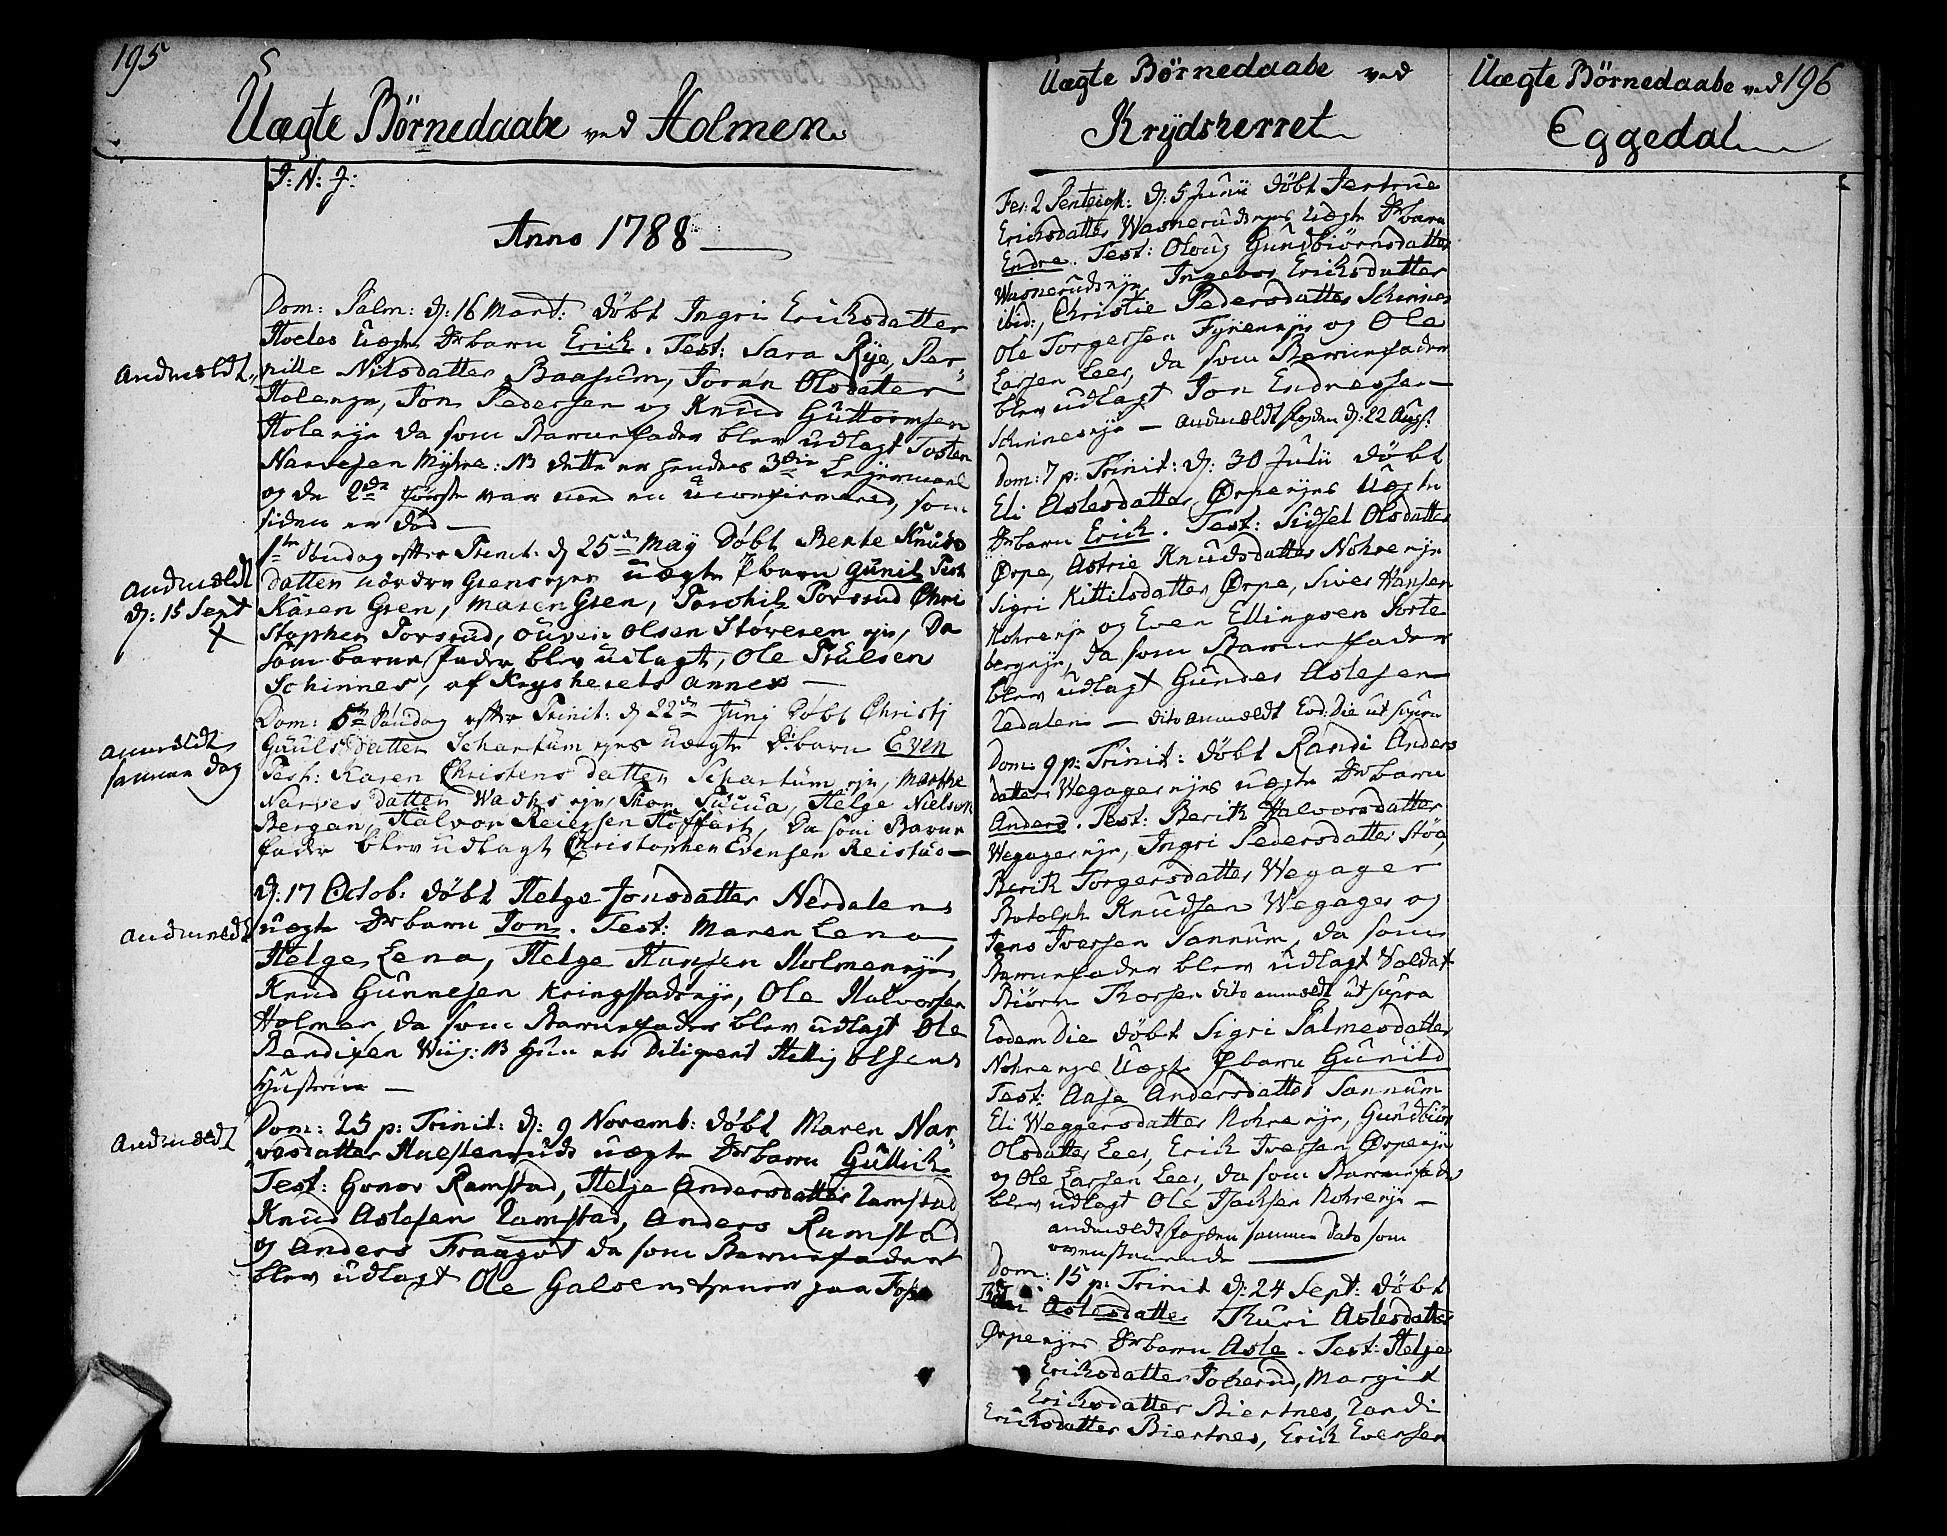 195
Uægte Børnedaabe ved Holmen
J: N: J:
Anno 1788
Dom: Palm: d: 16 Mart: døbt Ingri Ericksdatter
Hoeles Uægte Drbarn Erich. Test: Sara Rye, Per-
Andmeldt
nille Nilsdatter Baasum, Joran Olsdatter
Holeneje, Jon Pedersen og Knud Guttormsen
Holeneje da som Barnefader blev udlagt Tosten
Narvesen Myhre: NB dette er hendes 3die Lejermaal
og de 2de første var med en uconfirmered, som
siden er død
1te Søndag efter Trinit: d 25de May Døbt Bente Knuds
Andmeldt
datter nordre Grenseje uægte Pbarn Gunil Test
d: 15 Sept
Karen Gren, Maren Gren, Torchil Forsrud Chri
stopher Forsrud, Ouven Olsen Støvesen eje, Da
som barnefader blev udlagt, Ole Trulsen
Schinnes, af Krysherets annex
Dom: 5te Søndag efter Trinit: d 22de Junj Døbt Christj
Anmeldt
Gaulsdatter Schartum ejes uægte D:barn Even
samme Dag
Test: Karen Christensdatter Schartum eje, Marthe
Narvesdatter Wadhs eje, Thor Sucua, Helge Nielsen
Bergan, Halvor Reiersen Hoffart, Da som Barne
fader blev udlagt Christopher Evensen Reistad
d: 17 Octob: døbt Helge Jonsdatter Nerdalens
Andmeldt
uægte Drbarn Jon. Test: Maren Lena,
Helge Lena, Helge Hansen Holmeneje,
Knud Gunnesen Kringstadseje, Ole Halvorsen
Holmen, da som Barnefader blev udlagt Ole
Randixen Wiig: NB Hun er Diligent Hellj Olsens
Hustrue
Dom: 25 p: Trinit: d: 9 Novemb: døbt Maren Nar-
Andmeldt
vesdatter Huestenruds uægte Drbarn Gullich
Test: Gonor Ramstad, Helje Andersdatter Ramstad
Knud Aslesen Ramstad, Anders Ramstad
og Anders Fraagot da som Barnefader
blev udlagt Ole Galsen tjener paa Foss
Uægte Børnedaabe ved
Krydsherret
Fer: 2 Pentecost: d: 5 Junii døbt Jertrue
Ericksdatter Wasnerudsejes uægte Drbarn
Endre. Test: Oloug Gundbiørnsdatter
Wasnerudseje, Ingebor Ericksdatter
ibid:, Christie Pedersdatter Schinnes
Ole Torgersen Fyreneje og Ole
Larsen Leer, da som Barnefader
blev udlagt Jon Endresen
Schinneseje — Andmeldt Fogden d: 22 Augs:
Dom: 7 p: Trinit: d: 30 Julii døbt
Eli Aslesdatter Ørpeejes Uægte
Drbarn Erich. Test: Sidsel Olsdatter
Ørpe, Astrie Knudsdatter Nohreeje
Sigri Kittilsdatter Ørpe, Siver Hansen
Nohreeje og Even Ellingsen Sorte
bergeje, da som Barnefader
blev udlagt Gunder Aslesen
Ledalen — dito anmeldt Eod: Die ut supra
Dom: 9 p: Trinit: døbt Randi Anders
datter Wegagerejes uægte Drbarn
Anders. Test: Berith Halvorsdatter
Wegagereje, Ingri Pedersdatter Støa,
Berith Torgersdatter Wegager
Botolph Knudsen Wegager og
Jens Iversen Sannum, da som
Barnefader blev udlagt Soldat
Biørn Thorsen dito anmeldt ut supra
Eodem Die døbt Sigri Palmesdatter
Nohreejes Uægte Pbarn Gunild
Test: Aase Andersdatter Sannum
Eli Weggersdatter Nohreeje, Gundbiør
Olsdatter Leer, Erick Iversen Ørpeeje
og Ole Larsen Leer, da som Barnefader
blev udlagt Ole Isachsen Nohreeje —
andmeldt Fogden samme Dato som
ovenstaaende
Dom: 15 p: Trinit d: 24 Sept: døbt
Aslesdatter Thuri Aslesdatter
Ørpeejes Drbarn Asle. Test: Helge
Ericksdatter Jocherud, Margit
Ericksdatter Biertnes, Randi
Ericksdatter Biertnes, Erich Evensen
Uægte Børnedaabe ved 196
Eggedal